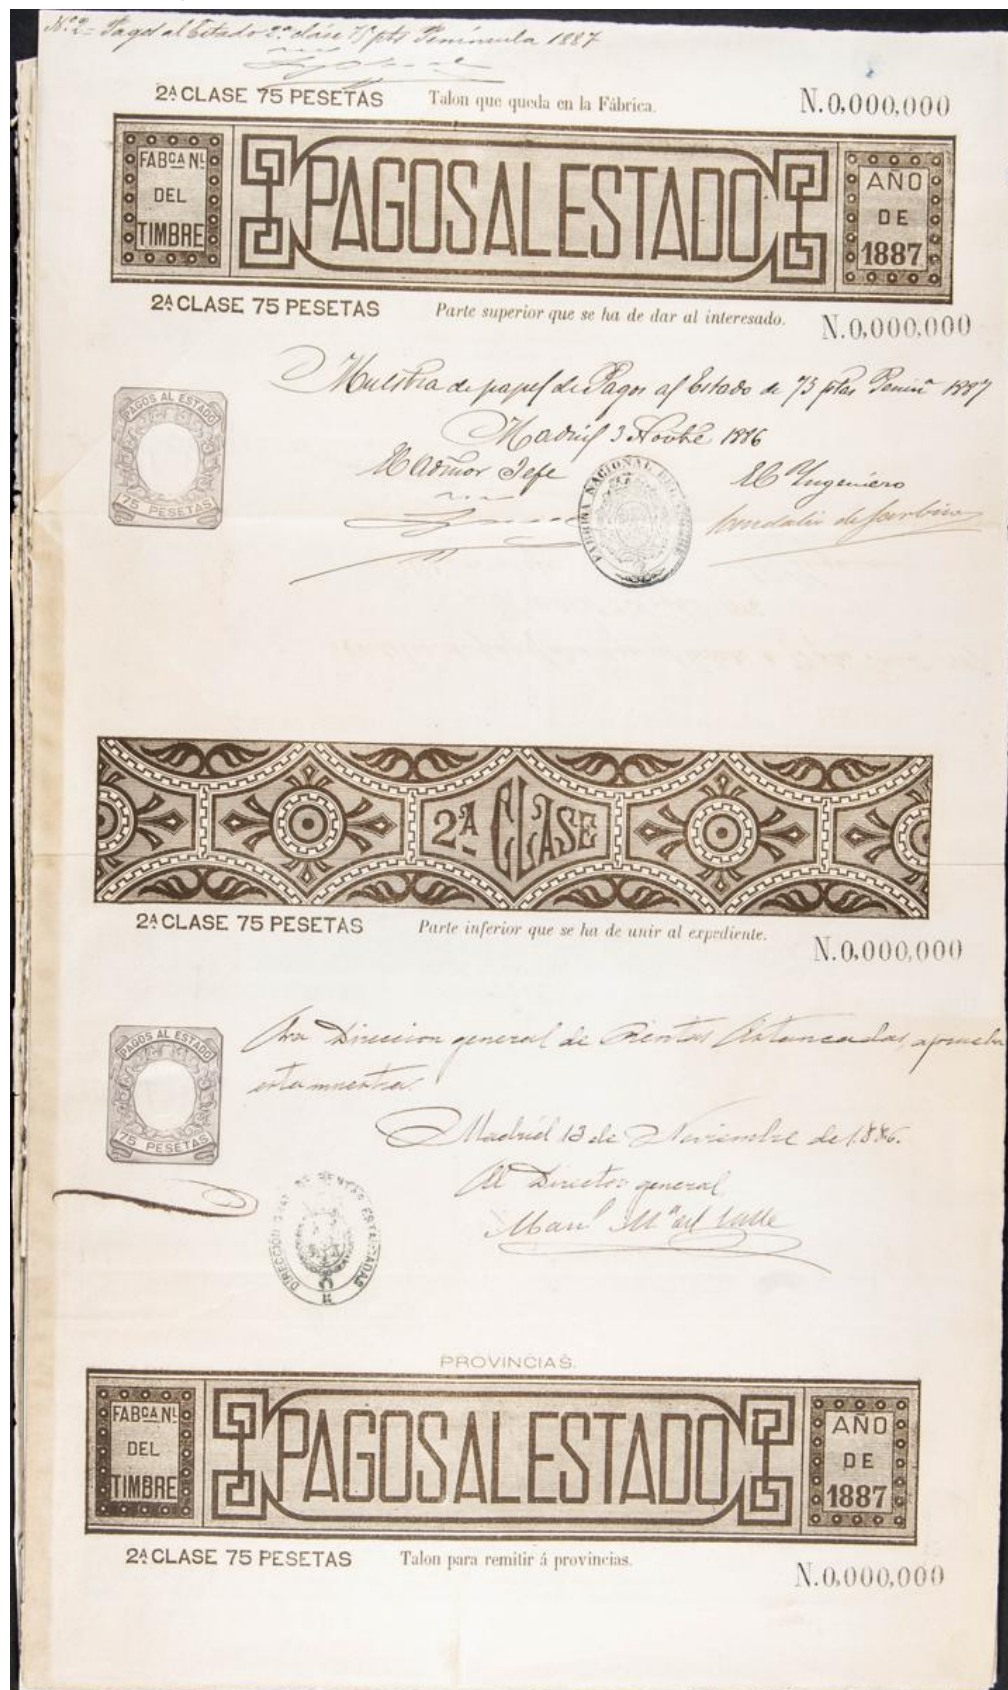 N.º 2 = Pagos al Estado 2.ª cláse 75 pts Peninsula 1887
2ª CLASE 75 PESETAS Talon que queda en la Fábrica. N.0,000,000
FABCA NL DEL TIMBRE
PAGOS AL ESTADO
AÑO DE 1887
2ª CLASE 75 PESETAS Parte superior que se ha de dar al interesado. N.0,000,000
Muestra de papel de Pagos al Estado de 75 ptas Peninª 1887
Madrid 3 Novbe 1886
El Admor Jefe El Ingeniero
PAGOS AL ESTADO
75 PESETAS
FÁBRICA NACIONAL DEL TIMBRE
2ª CLASE
2ª CLASE 75 PESETAS Parte inferior que se ha de unir al expediente. N.0,000,000
Esta Direccion general de Rentas Estancadas, aprueba
esta muestra.
Madrid 13 de Noviembre de 1886.
El Director general
Manl Mª del Valle
PAGOS AL ESTADO
75 PESETAS
DIRECCION GRAL DE RENTAS ESTANCADAS
PROVINCIAS.
FABCA NL DEL TIMBRE
PAGOS AL ESTADO
AÑO DE 1887
2ª CLASE 75 PESETAS Talon para remitir á provincias. N.0,000,000